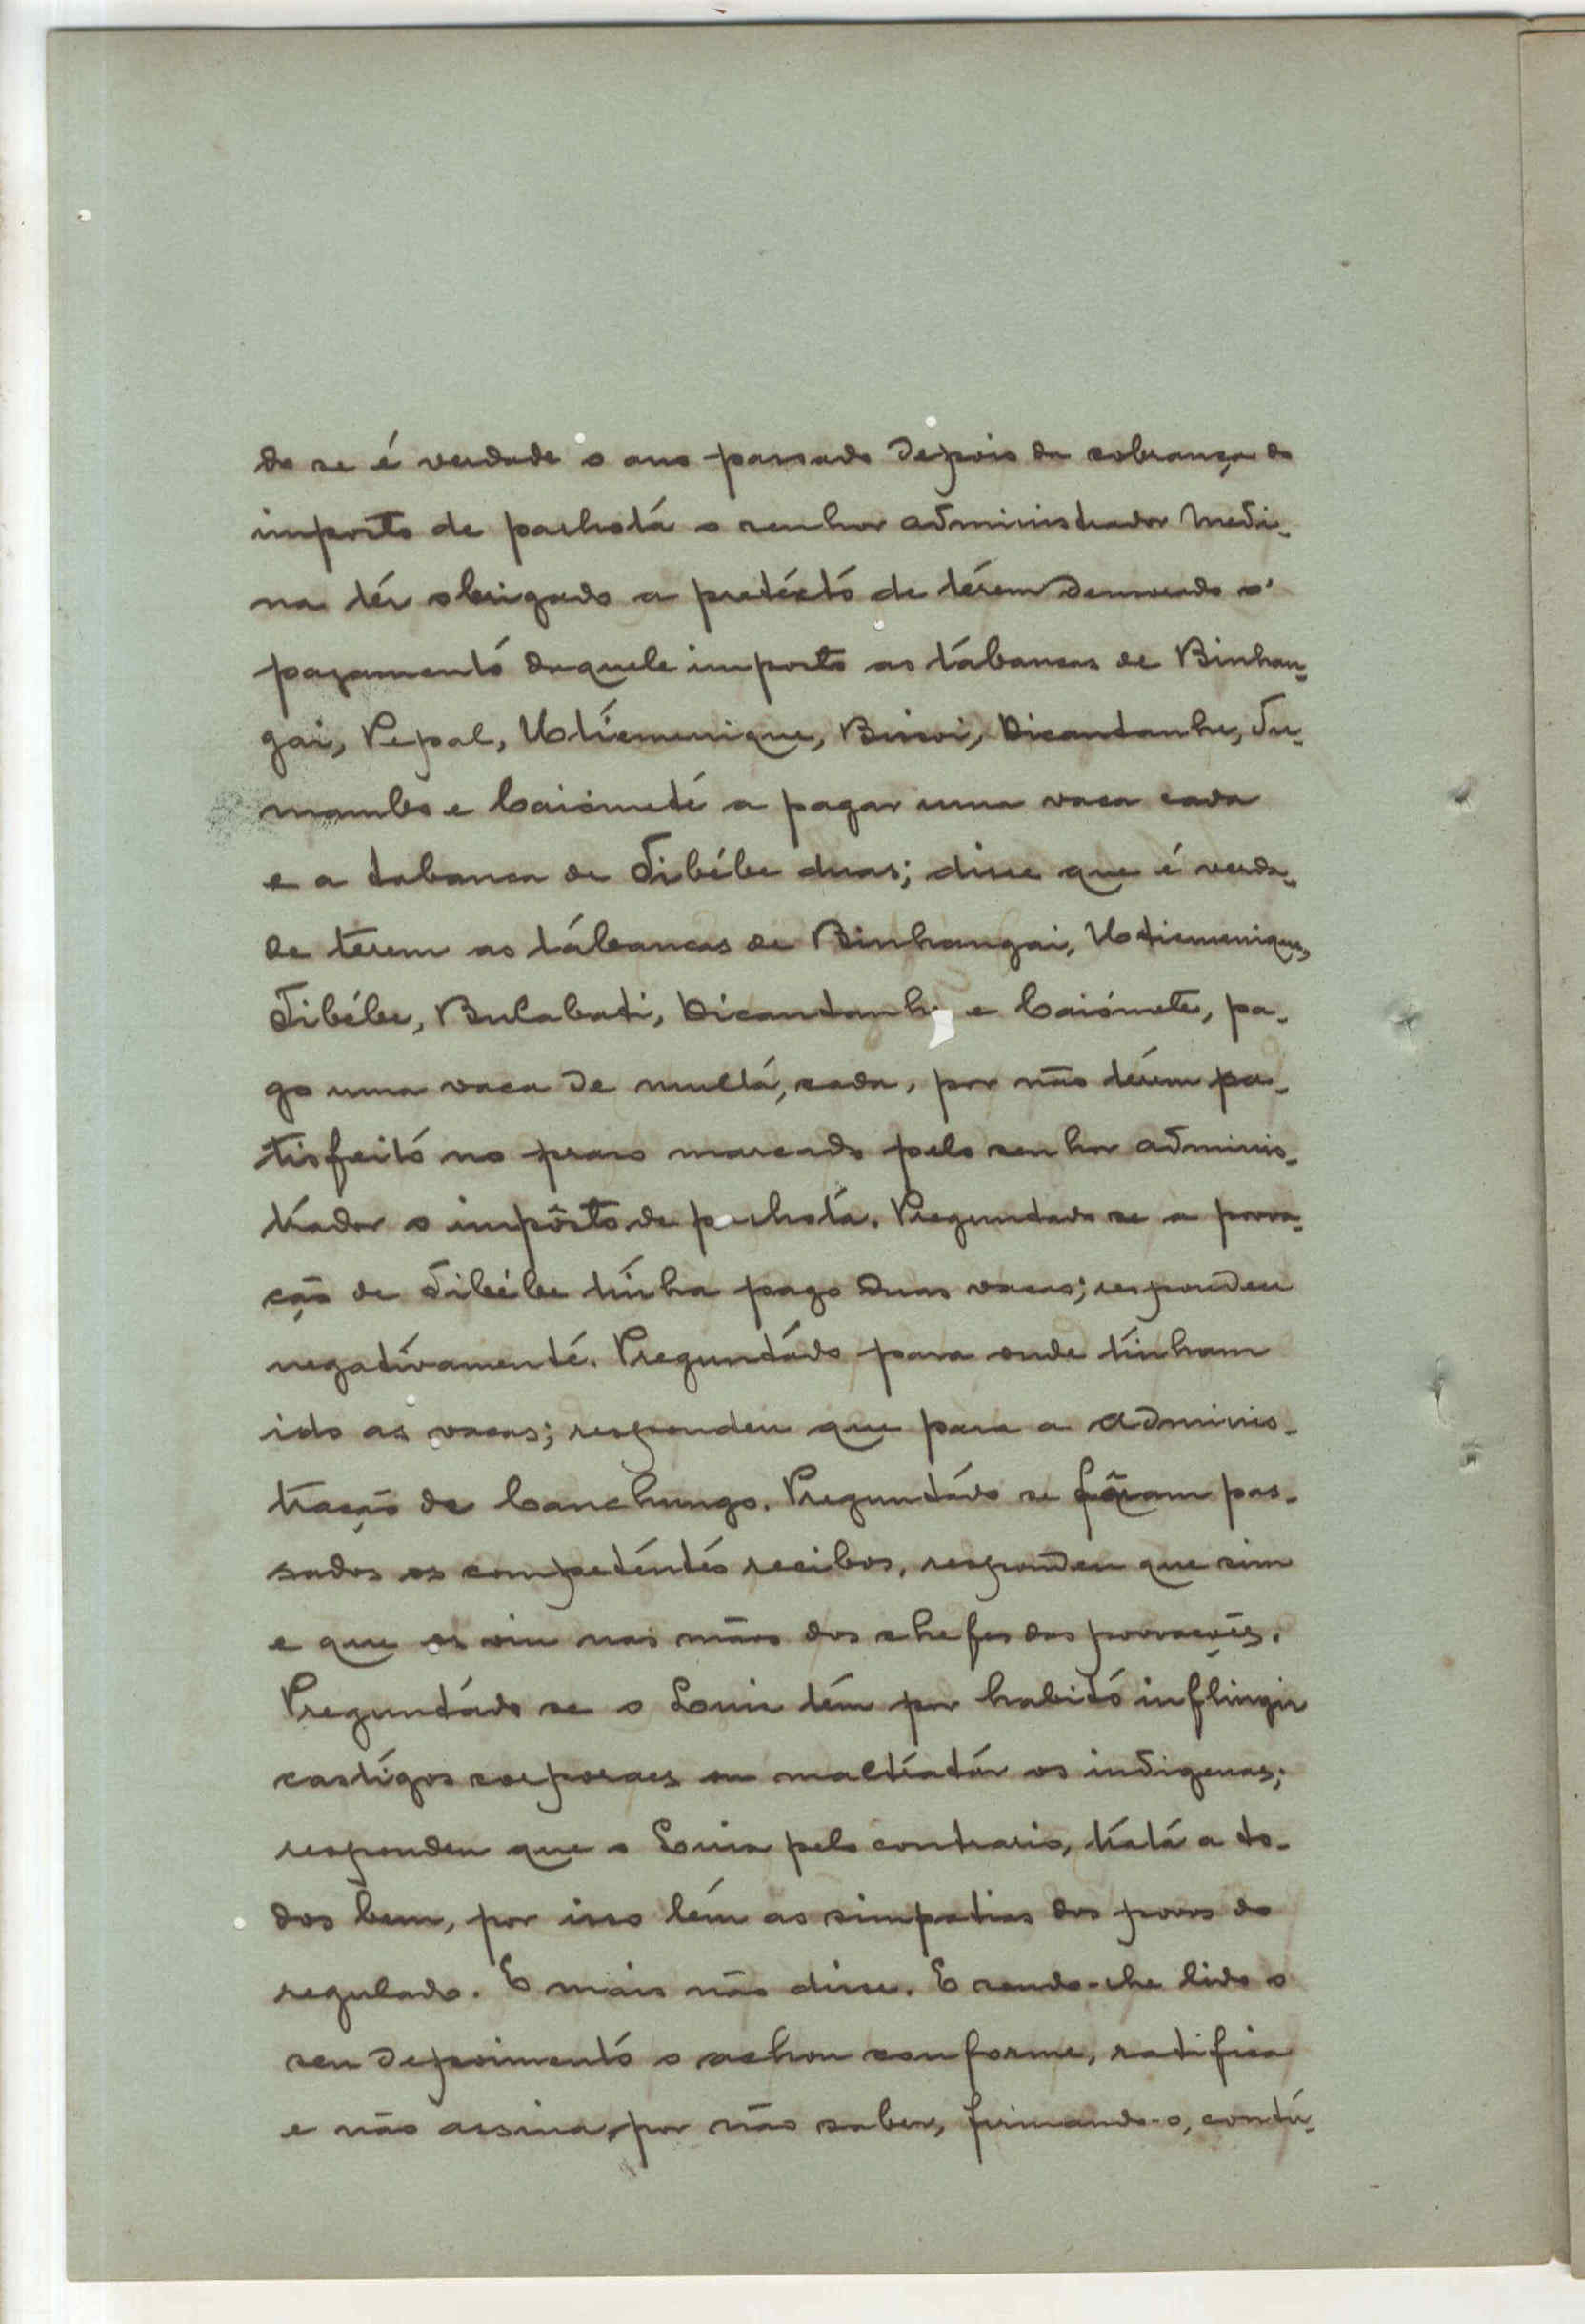 do se é verdade o ano passado depois da cobrança do
imposto de palhota o senhor administrador Medi-
na ter obrigado a pretexto de terem demorado o
pagamento daquele imposto as tabancas de Binhan-
gai, Pepal, Utiemenique, Bissoi, Dicantanhe, Tu-
mambo e Caiomete a pagar uma vaca cada
e a tabanca de Tibébe duas; disse que é verda-
de terem as tabancas de Binhangai, Utiemenique,
Tibébe, Bulabati, Dicantanh e Caiomete, pa-
go uma vaca de multa, cada, por não terem sa-
tisfeito no praso marcado pelo senhor adminis-
trador o impôsto de palhota. Preguntado se a povoa-
ção de Tibébe tinha pago duas vacas; respondeu
negativamente. Preguntado para onde tinham
ido as vacas; respondeu que para a adminis-
tração de Canchungo. Preguntado se fôram pas-
sados os competentes recibos, respondeu que sim
e que os viu nas mãos dos chefes das povoações.
Preguntado se o Luis tem por habito inflingir
castigos corporaes ou maltratar os indigenas;
respondeu que o Luis pelo contrario, trata a to-
dos bem, por isso tem as simpatias dos povos do
regulado. E mais não disse. E sendo-lhe lido o
seu depoimento o achou conforme, ratifica
e não assina, por não saber, firmando-o, contu-